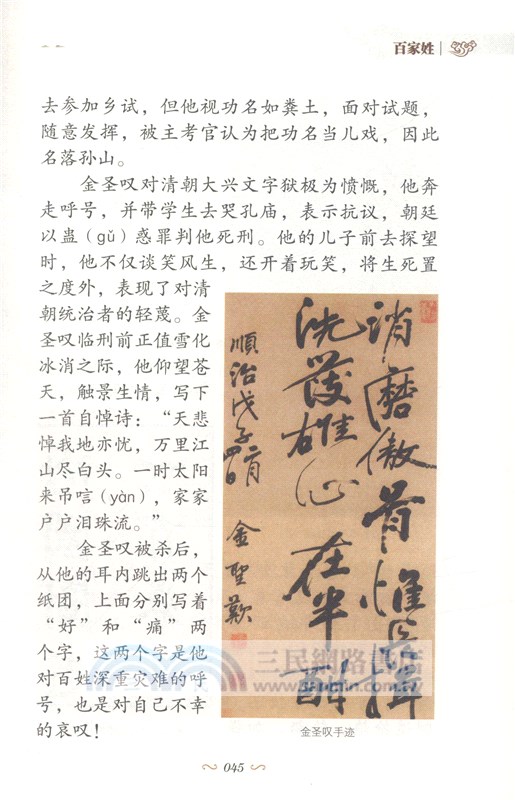 百家姓
去参加乡试，但他视功名如粪土，面对试题，
随意发挥，被主考官认为把功名当儿戏，因此
名落孙山。
金圣叹对清朝大兴文字狱极为愤慨，他奔
走呼号，并带学生去哭孔庙，表示抗议，朝廷
以蛊（gǔ）惑罪判他死刑。他的儿子前去探望
时，他不仅谈笑风生，还开着玩笑，将生死置
之度外，表现了对清
朝统治者的轻蔑。金
圣叹临刑前正值雪化
冰消之际，他仰望苍
天，触景生情，写下
一首自悼诗：“天悲
悼我地亦忧，万里江
山尽白头。一时太阳
来吊唁（yàn），家家
户户泪珠流。”
金圣叹被杀后，
从他的耳内跳出两个
纸团，上面分别写着
“好”和“痛”两
个字，这两个字是他
对百姓深重灾难的呼
号，也是对自己不幸
的哀叹！
消磨傲骨惟長揖
洗發雄心在半酣
順治戊子二月
金聖歎
金圣叹手迹
三民網路書店
www.sanmin.com.tw
045